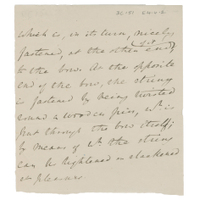 which is, in its turn, nicely
fastened, at the other end
to the bow. At the opposite
end of the bow, the string
is fastened by being twisted
round a wooden pin, wh. is
put through the bow itself,
by means of wh. the string
can be tightened or slackened
at pleasure.